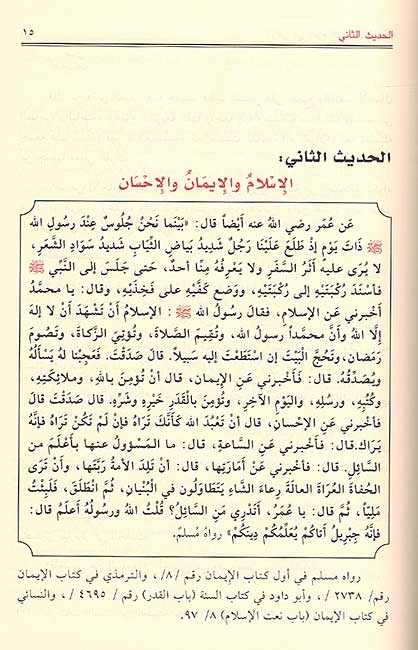 الحديث الثاني ١٥
الحديث الثاني:
الإِسْلَامُ والإِيمَانُ والإِحْسَان
عَن عُمَر رضي اللهُ عنه أَيْضاً قال: «بَيْنَما نَحْنُ جُلُوسٌ عِنْدَ رسُولِ الله
ﷺ ذَاتَ يَوْمٍ إذْ طَلَعَ عَلَيْنَا رَجُلٌ شَدِيدُ بَيَاضِ الثِّيَابِ شَدِيدُ سَوَادِ الشَّعَرِ،
لا يُرَى عليه أَثَرُ السَّفَرِ ولا يَعْرِفُهُ مِنَّا أحدٌ، حَتى جَلَسَ إلى النَّبِيِّ ﷺ
فأَسْنَدَ رُكْبَتَيْهِ إلى رُكْبَتَيْهِ، ووَضع كَفَّيْهِ على فَخِذَيْهِ، وقال: يا محمَّدُ
أخْبرني عَنِ الإسلامِ، فقالَ رسُولُ الله ﷺ : الإسلامُ أنْ تَشْهَدَ أنْ لا إلهَ
إلَّا اللهُ وأنَّ محمَّداً رسولُ الله، وتُقِيمَ الصَّلاةَ، وتُؤتِيَ الزَّكاةَ، وتَصُومَ
رَمَضانَ،وتَحُجَّ الْبَيْتَ إن اسْتَطَعْتَ إليه سَبِيلاً. قالَ صَدَقْتَ. فَعَجِبْنا لهُ يَسْأَلُهُ
ويُصَدِّقُهُ. قال: فَأَخبرني عَنِ الإيمان، قال: أنْ تُؤمِنَ باللهِ، وملائِكَتِهِ،
وكُتُبِهِ، ورسُلِهِ، واليَوْمِ الآخِرِ، وتُؤمِنَ بالْقَدَرِ خَيْرِهِ وشَرِّهِ. قال صَدَقْتَ قالَ
فأخبرني عَنِ الإحْسَانِ، قال: أنْ تَعْبُدَ الله كَأنَّكَ تَرَاهُ فإنْ لَمْ تَكُنْ تَرَاهُ فإنَّهُ
يَرَاك.قال: فأخبرني عَنِ السَّاعةِ، قال: ما المَسْؤُولُ عنها بأعْلَمَ من
السَّائِلِ. قال: فأخبرني عَنْ أمَارَتِها، قال: أنْ تَلِدَ الأمةُ رَبَّتَها، وأنْ تَرَى
الحُفاةَ العُرَاةَ العالَةَ رِعاءَ الشَّاءِ يَتَطاوَلُون في الْبُنْيانِ، ثُمَّ انْطَلَقَ، فَلَبِثْتُ
مَلِيّاً، ثُمَّ قال: يا عُمَرُ، أتَدْرِي مَنِ السَّائِلُ؟ قُلْتُ اللهُ ورسُولُهُ أعلَمُ قال:
فإنَّهُ جِبْرِيلُ أتاكُمْ يُعَلِّمُكُمْ دِينَكُمْ» رواهُ مسْلمٌ.
رواه مسلم في أول كتاب الإيمان رقم /٨/ ، والترمذي في كتاب الإيمان
رقم/ ٢٧٣٨ / ، وأبو داود في كتاب السنة (باب القدر) رقم / ٤٦٩٥ / ، والنسائي
في كتاب الإيمان (باب نعت الإسلام) ٨/ ٩٧.